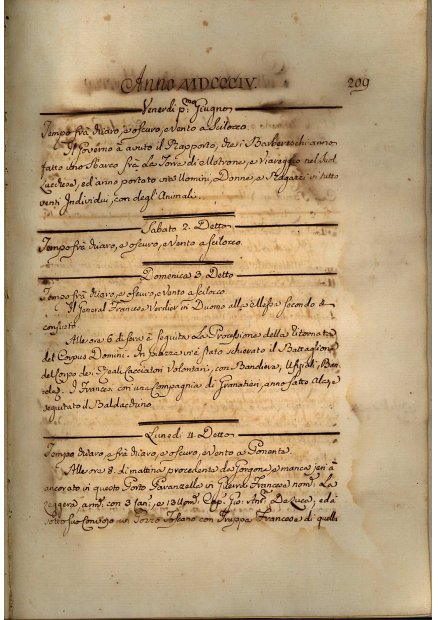 Anno MDCCCIV.
209
Venerdi p.mo Giugno
Tempo frà chiaro, e oscuro, e vento a Scilocco.
Il Governo à avuto il Rapporto, che i Barbereschi anno
fatto uno sbarco frà la Torre di Motrone, e Viareggio nel Sud
Lucchese, ed anno portato via Uomini, Donne, e Ragazzi in tutto
venti Individui, con degl'Animali.
Sabato 2. Detto
Tempo frà chiaro, e oscuro, e vento a scilocco.
Domenica 3. Detto
Tempo frà chiaro, e oscuro, e vento a scilocco.
Il General Francese Verdier in Duomo alla Messa secondo il
consueto
Alle ore 6 di sera è seguita la Processione della Ritornata
del Corpus Domini. In Piazza vi è stato schierato il Battaglione
del Corpo de Reali Cacciatori Volontari, con Bandiera, Ufiziali, Ban-
da, I Francesi con una Compagnia di Granatieri, anno fatto Ala, e
seguitato il Baldacchino.
Lunedi 4. Detto
Tempo chiaro, e frà chiaro, e oscuro, e vento a Ponente.
Alle ore 8. di mattina procedente da Gorgona e manca jeri à
ancorato in questo Porto Paranzella in Guerra Francese nom.ta La
Leggera arm.ta con 3 Can.i e 13 Uom.i Cap.o Gio. Ant.o De Luca, ed à
sotto suo Convojo un Pozzo Toscano con Truppa Francese di quella